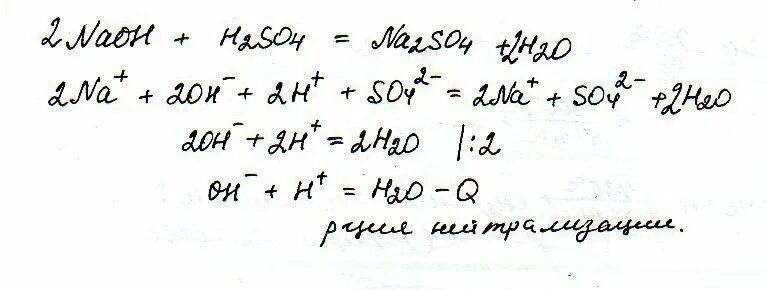 2NaOH + H2SO4 = Na2SO4 + 2H2O
2Na⁺ + 2OH⁻ + 2H⁺ + SO4²⁻ = 2Na⁺ + SO4²⁻ + 2H2O
2OH⁻ + 2H⁺ = 2H2O |:2
OH⁻ + H⁺ = H2O – Q
рция нейтрализации.